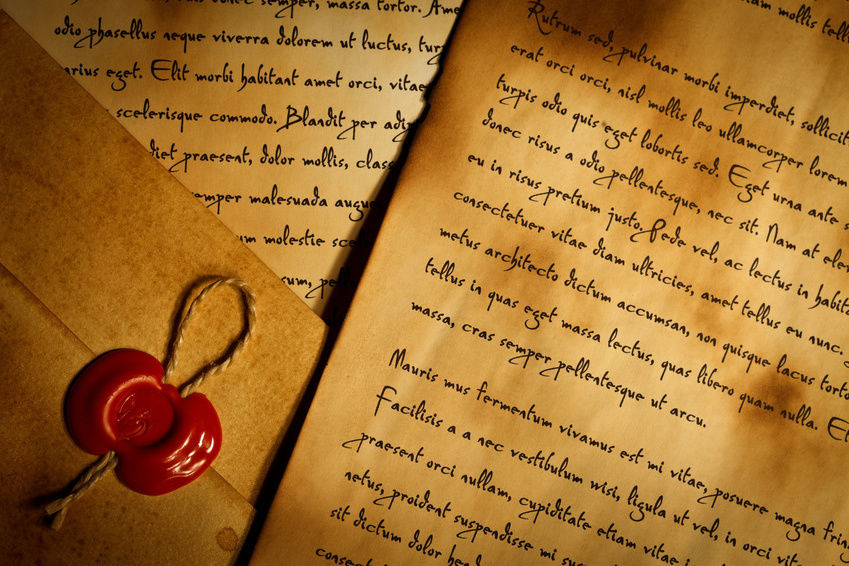 duis donec semper, massa tortor. Ame
odio phasellus neque viverra dolorem ut luctus, tur
arius eget. Elit morbi habitant amet orci, vitae
scelerisque commodo. Blandit per adip
diet praesent, dolor mollis, class
emper malesuada augue
um molestie sce
sum, pe
am mollis tell
Rutrum sed, pulvinar morbi imperdiet, sollicit
erat orci orci, nisl mollis leo ullamcorper lorem
turpis odio quis eget lobortis sed. Eget urna ante s
donec risus a odio pellentesque, nec sit. Nam at elei
eu in risus pretium justo. Pede vel, ac lectus in habita
consectetuer vitae diam ultricies, amet tellus eu nunc.
metus architecto dictum accumsan, non quisque lacus torto
tellus in quas eget massa lectus, quas libero quam nulla. El
massa, cras semper pellentesque ut arcu.
Mauris mus fermentum vivamus est mi vitae, posuere magna frin
Facilisis a a nec vestibulum wisi, ligula ut vel, in orci vita
praesent orci nullam, cupiditate etiam vitae i
netus, proident suspendisse mi sus
sit dictum dolor he
consect